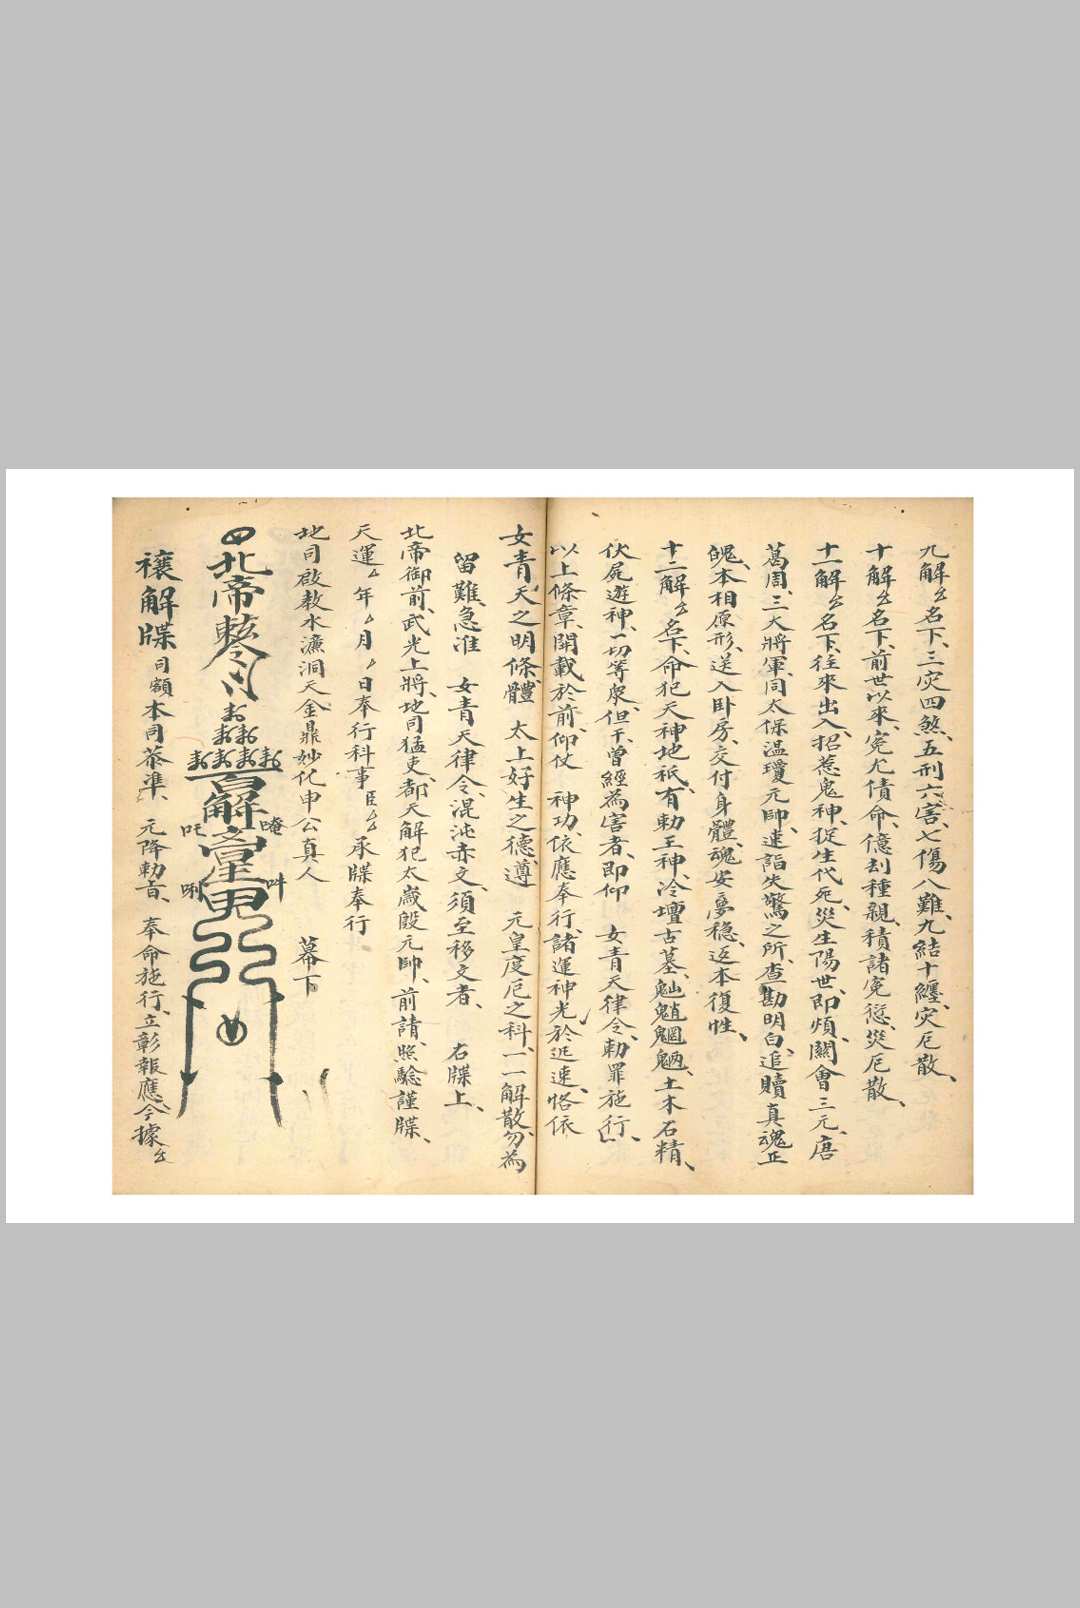 九解厶名下、三灾四煞、五刑六害、七傷八難、九結十纏、灾厄散、
十解厶名下、前世以來、冤尤債命、億刦種親、積諸冤愆、災厄散、
十一解厶名下、往來出入、招惹鬼神、捉生代死、災生陽世、即煩、關會三元、唐
葛周、三大將軍、同太保溫瓊元帥、速詣失驚之所、查勘明白、追贖真魂正
魄、本相原形、送入臥房、交付身體、魂安夢穩、返本復性、
十二解厶名下、命犯天神地祇、有勅王神、冷壇古墓、土木石精、
伏屍遊神、一切等衆、但干曾經為害者、即仰 女青天律令、勅罪施行、
以上條章、開載於前、仰仗 神功、依應奉行、諸運神光、於延速、恪依
女青天之明條、體 太上好生之德、遵 元皇度厄之科、一一解散、勿為
留難、急准 女青天律令、混沌赤文、須至移文者、 右牒上、
北帝御前、武光上將、地司猛吏、都天解犯太歲殷元帥、前請、照驗謹牒、
天運厶年厶月厶日奉行科事臣厶厶承牒奉行
地司啟教水濂洞天金鼎妙化申公真人 幕下
北帝
百解
唵 吽 吒 唎
禳解牒 司額本司恭準、元降勅旨、奉命施行、立彰報應、今據厶